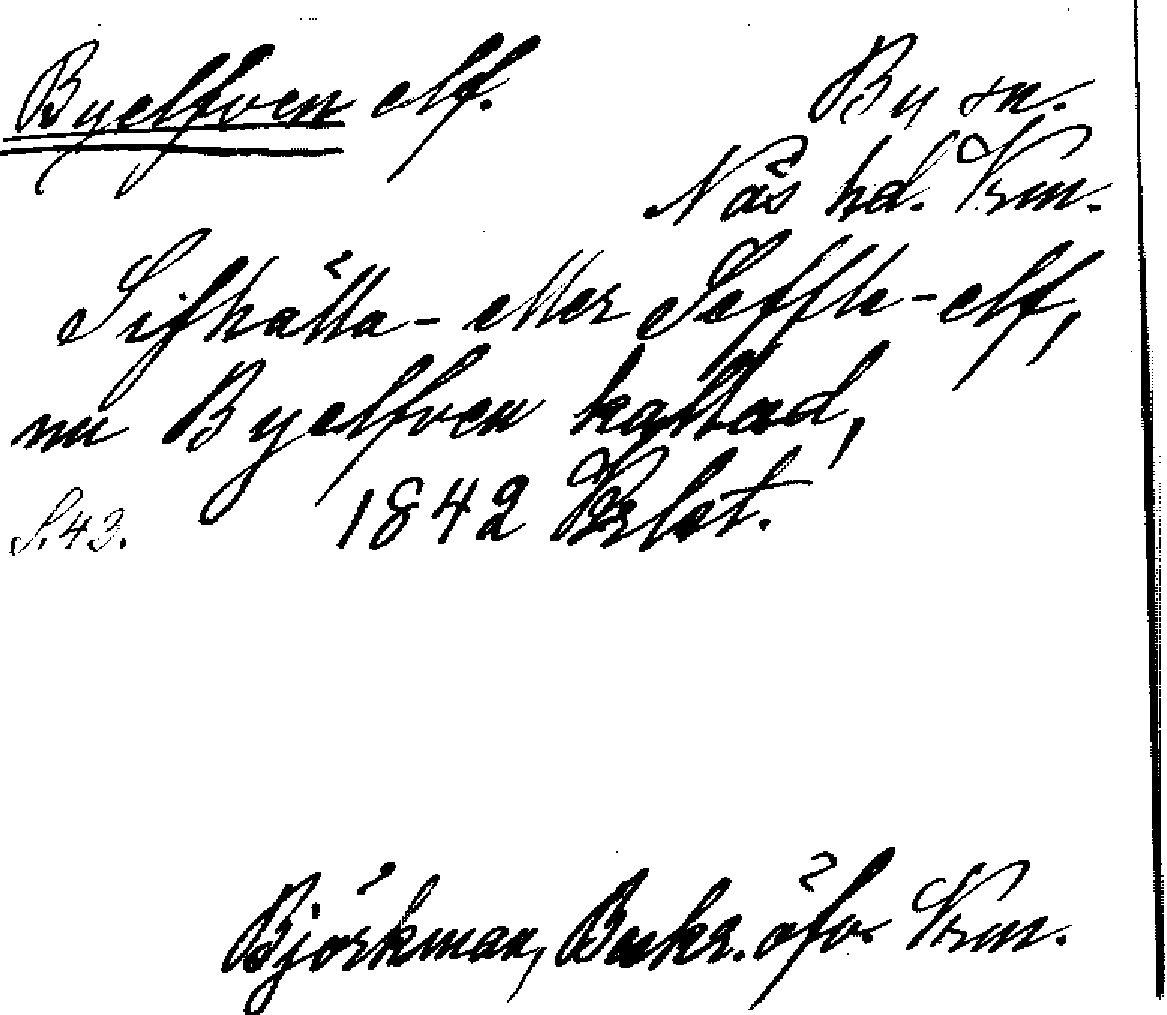 Byelfven elf. By sn.
Näs hd. Vrm.
Sifhälla- eller Seffle-elf,
nu Byelfven kallad,
S. 43. 1842
Björkman, Beskr. öfv. Vrm.